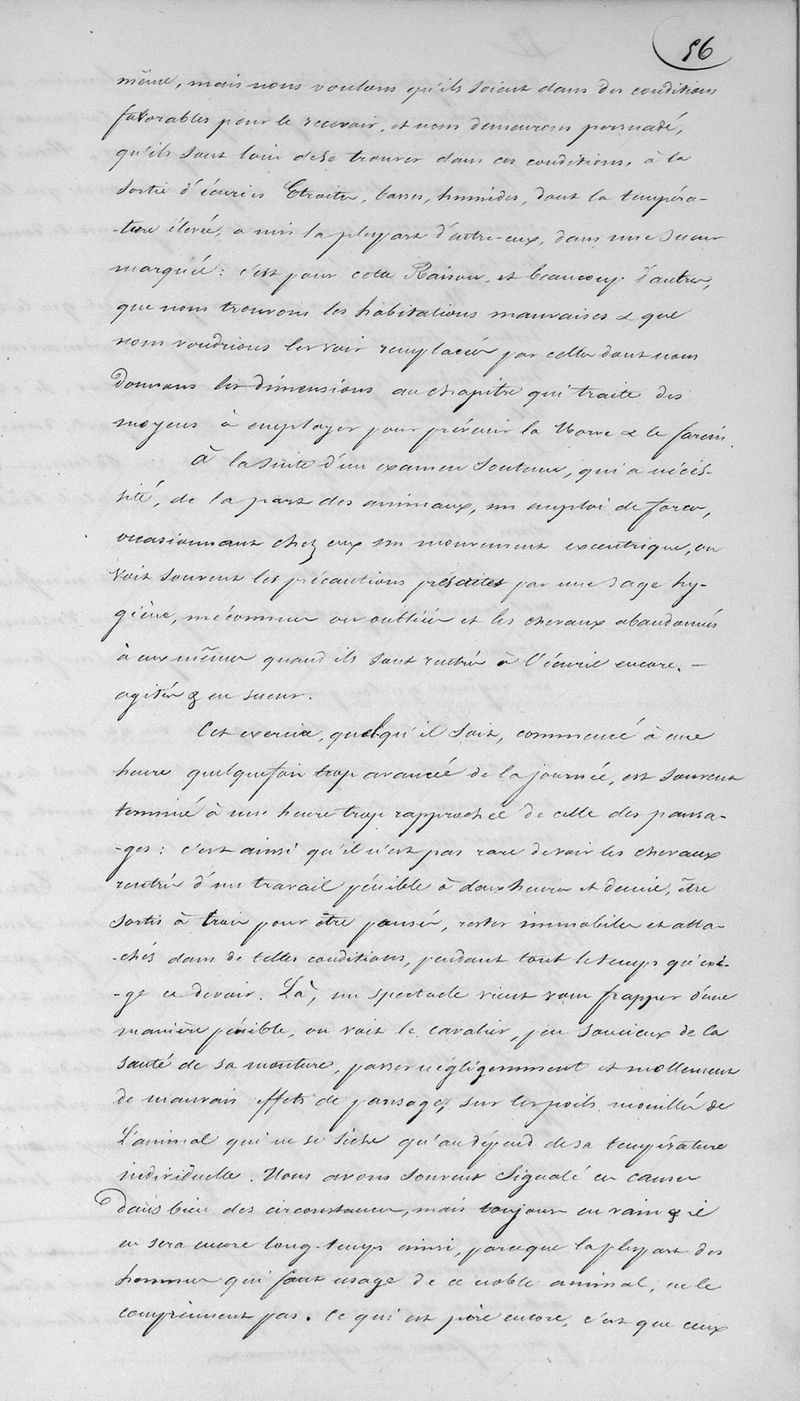 56
même, mais nous voulons qu'ils soient dans des conditions
favorables pour le recevoir, et nous demeurons persuadé,
qu'ils sont loin de se trouver dans ces conditions, à la
sortie d'écuries Etroites, basses, humides, dont la tempéra-
-ture élevée, a mis la plupart d'entre-eux, dans une sueur
marquée : c'est pour cette Raison, et beaucoup d'autres,
que nous trouvons les habitations mauvaises & que
nous voudrions les voir remplacées par celles dont nous
Donnons les dimensions au chapitre qui traite des
moyens à employer pour prévenir la Morve & le farcin.
À la suite d'un examen soutenu, qui a nécés-
sité, de la part des animaux, un emploi de force,
occasionnant chez eux un mouvement excentrique, on
Voit souvent les précautions prédites par une sage hy-
giène, méconnues ou oubliées et les chevaux abandonnés
à eux mêmes quand ils sont rentrés à l'écurie encore. —
agités & en sueur.
Cet exercice, quelqu'il soit, commencé à une
heure quelquefois trop avancée de la journée, est souvent
terminé à une heure trop rapprochée de celle des pansa-
-ges : c'est ainsi qu'il n'est pas rare de voir les chevaux
rentrés d'un travail pénible à deux heures et demie, être
sortis à trois pour être pansés, rester immobiles et atta-
-chés dans de telles conditions, pendant tout le temps qu'exi-
-ge ce devoir. Là, un spectacle vient vous frapper d'une
manière pénible, on voit le cavalier, peu soucieux de la
santé de sa monture, passer négligemment et mollement
de mauvais effets de pansage, sur les poils mouillés de
L'animal qui ne se sèche qu'au dépend de sa température
individuelle. Nous avons souvent signalé ces causes
Dans bien des circonstances, mais toujours en vain & il
en sera encore long-temps ainsi, parceque la plupart des
hommes qui font usage de ce noble animal, ne le
comprènnent pas. Ce qui est pire encore, c'est que ceux